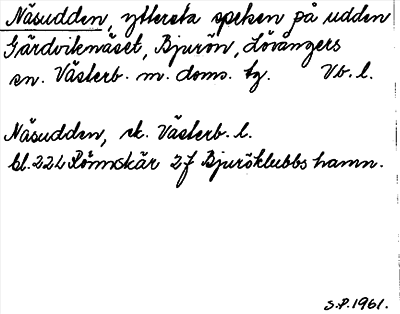 Näsudden, yttersta spetsen på udden
Gärdviknäset, Bjurön, Lövångers
sn. Västerb. m. doms. tg. Vb. l.
Näsudden, sk. Västerb. l.
bl. 22L Rönnskär 2f Bjuröklubbs hamn.
S.P. 1961.